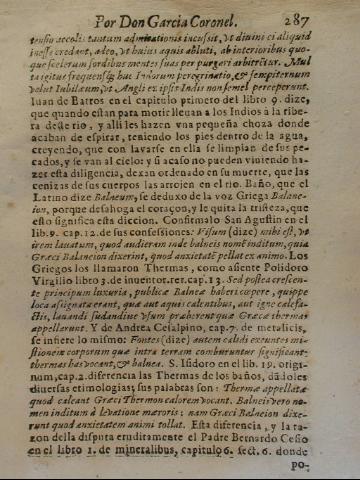 Por Don Garcia Coronel. 287
tensio accolis tantam admirationis incussit, vt diuini ei aliquid
inesse credant, adeo, vt huius aquis abluti, ab interioribus quo-
que scelerum sordibus mentes suas per purgari arbitrẽtur. Mul
ta igitur frequensq; huc Indorum peregrinatio, & sempiternum
velut Iubilæum, vt Angli ex ipsis Indis non semel perceperunt.
Iuan de Barros en el capitulo primero del libro 9. dize,
que quando estan para morir lleuan a los Indios à la ribe-
ra deste rio, y alli les hazen vna pequeña choza donde
acaban de espirar, teniendo los pies dentro de la agua,
creyendo, que con lavarse en ella se limpian de sus pe-
cados, y se van al cielo: y si acaso no pueden viuiendo ha-
zer esta diligencia, dexan ordenado en su muerte, que las
cenizas de sus cuerpos las arrojen en el rio. Baño, que el
Latino dize Balneum, se deduxo de la voz Griega Balane-
ion, porque desahoga el coraçon, y le quita la tristeza, que
esto significa esta diccion. Confirmalo San Agustin en el
lib. 9. cap. 12. de sus confessiones: Visum (dize) mihi est, vt
irem lauatum, quod audieram inde balneis nomẽ inditum, quia
Græci Balaneion dixerint, quod anxietatẽ pellat ex animo. Los
Griegos los llamaron Thermas, como asiente Polidoro
Virgilio libro 3. de inuentor. rer. cap. 13. Sed postea crescen-
te principum luxuria, publicæ Balneæ haberi cœpere, quippe
loca assignata erant, quæ aut aquis calentibus, aut igne calefa-
ctis, lauandi sudandiue vsum præberent quæ Græcæ thermas
appellarunt. Y de Andrea Cesalpino, cap. 7. de metalicis,
se infiere lo mismo: Fontes (dize) autem calidi exeuntes mi-
ssionem corporum quæ intra terram comburuntur significant:
thermas has vocant, & balnea. S. Isidoro en el lib. 19. origi-
num, cap. 2. diferencia las Thermas de los baños, dãdoles
diuersas etimologias; sus palabras son: Thermæ appellatæ
quod caleant Græci Thermon calorem vocant. Balneis vero no-
men inditum à levatione mæroris: nam Græci Balaneion dixe-
runt quod anxietatem animi tollat. Esta diferencia, y la ra-
zon della disputa eruditamente el Padre Bernardo Cesio
en el libro 1. de mineralibus, capitulo 6. sect. 6. donde
po-